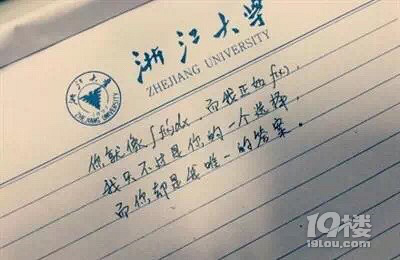 浙江大学
ZHEJIANG UNIVERSITY
你就像∫f(x)dx，而我正如f(x)，
我只不过是你的一个选择，
而你却是我唯一的答案。
19楼
19lou.com